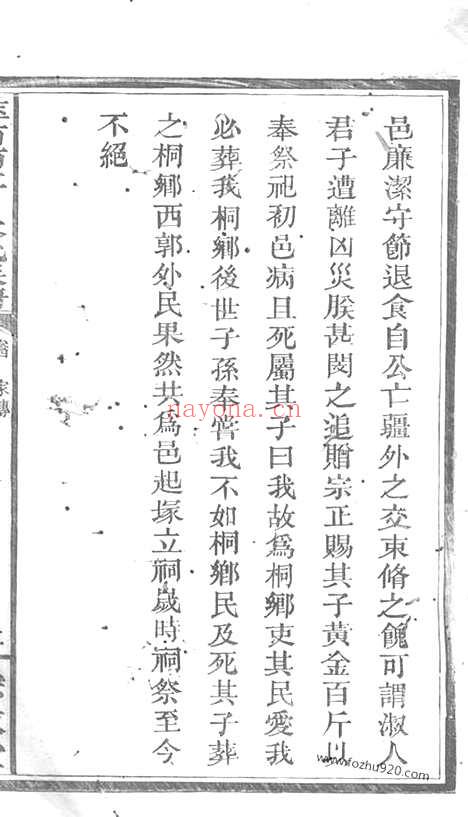 邑廉潔守節退食自公亡疆外之交束脩之餽可謂淑人
君子遭離凶災朕甚閔之追贈宗正賜其子黃金百斤以
奉祭祀初邑病且死屬其子曰我故為桐鄉吏其民愛我
必葬我桐鄉後世子孫奉嘗我不如桐鄉民及死其子葬
之桐鄉西郭外民果然共為邑起塚立祠歲時祠祭至今
不絕
家傳
nayona.cn
www.fozhu920.com